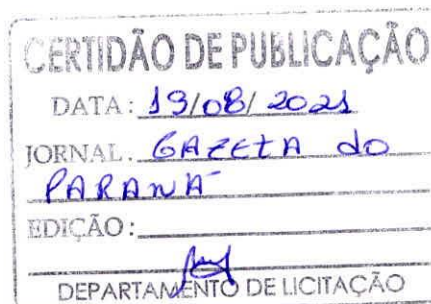 CERTIDÃO DE PUBLICAÇÃO
DATA: 19/08/2021
JORNAL: GAZETA do
PARANÁ
EDIÇÃO:
DEPARTAMENTO DE LICITAÇÃO